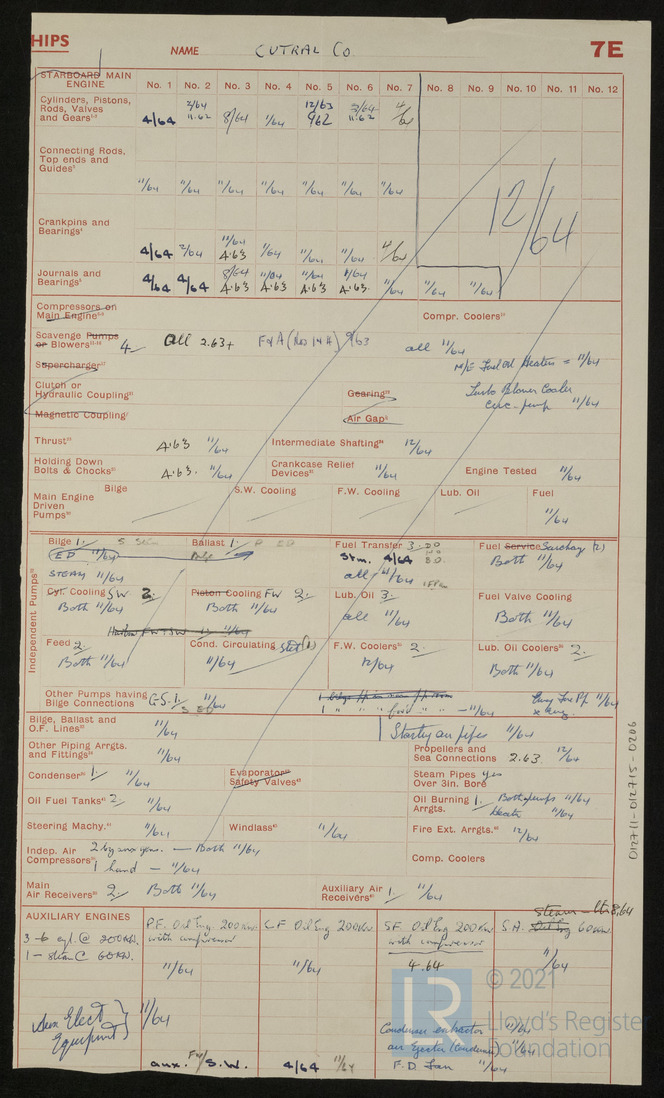 HIPS
NAME CUTRAL CO 7E
STARBOARD MAIN ENGINE No. 1 No. 2 No. 3 No. 4 No. 5 No. 6 No. 7 No. 8 No. 9 No. 10 No. 11 No. 12
Cylinders, Pistons, 2/64 12/63 2/64
Rods, Valves and Gears 4/64 11.62 8/64 1/64 9/62 11.62 4/64
Connecting Rods,
Top ends and
Guides 11/64 11/64 11/64 11/64 11/64 11/64 11/64
12/64
Crankpins and 11/64
Bearings 4/64 2/64 4.63 1/64 11/64 11/64 4/64
Journals and 8/64 11/64 11/64 1/64
Bearings 4/64 4/64 4.63 4.63 4.63 4.63 11/64 11/64 11/64
Compressors on
Main Engine Compr. Coolers
Scavenge Pumps
or Blowers 4 all 2.63+ F & A (Nos 1 & 4) 9/63 all 11/64
Supercharger M/E Fuel Oil Heaters = 11/64
Clutch or
Hydraulic Coupling Gearing Turbo Blower Cooler
Circ. pump 11/64
Magnetic Coupling Air Gap
Thrust 4.63 11/64 Intermediate Shafting 12/64
Holding Down
Bolts & Chocks 4.63. 11/64 Crankcase Relief
Devices 11/64 Engine Tested 11/64
Main Engine
Driven
Pumps Bilge S.W. Cooling F.W. Cooling Lub. Oil Fuel
11/64
Independent Pumps
Bilge 1 Ballast 1 Fuel Transfer 3 Fuel Service (2)
ED 11/64 Stm. 4/64 Both 11/64
STEAM 11/64 all 11/64
Cyl. Cooling SW 2 Piston Cooling FW 2 Lub. Oil 3 Fuel Valve Cooling
Both 11/64 Both 11/64 all 11/64 Both 11/64
Feed 2 Cond. Circulating (1) F.W. Coolers 2 Lub. Oil Coolers 2
Both 11/64 11/64 12/64 Both 11/64
Other Pumps having
Bilge Connections G.S. 1 11/64
Bilge, Ballast and
O.F. Lines 11/64 Starting air pipes 11/64
Other Piping Arrgts.
and Fittings 11/64 Propellers and
Sea Connections 2.63 12/64
Condenser 1 11/64 Evaporator
Safety Valves Steam Pipes yes
Over 3in. Bore
Oil Fuel Tanks 2 11/64 Oil Burning 1 Both pumps 11/64
Arrgts. Heater 11/64
Steering Machy. 11/64 Windlass 11/64 Fire Ext. Arrgts. 12/64
Indep. Air
Compressors 2 by aux. gens. — Both 11/64
1 hand — 11/64 Comp. Coolers
Main
Air Receivers 2 Both 11/64 Auxiliary Air
Receivers 1 11/64
AUXILIARY ENGINES
P.F. Oil Eng. 200kw. C.F Oil Eng 200kw. S.F. Oil Eng 200kw S.A. 60kw.
3 - 6 cyl. @ 200kW. with compressor with compressor
1 - steam @ 60kW. 4.64
11/64 11/64 11/64
Elect
Equipment 11/64
Condenser extractor 11/64
air ejector (Condenser) 11/64
aux. FW/S.W. 4/64 11/64 F.D. Fan 11/64
012711-012715-0206
© 2021
LR
Lloyd's Register
Foundation